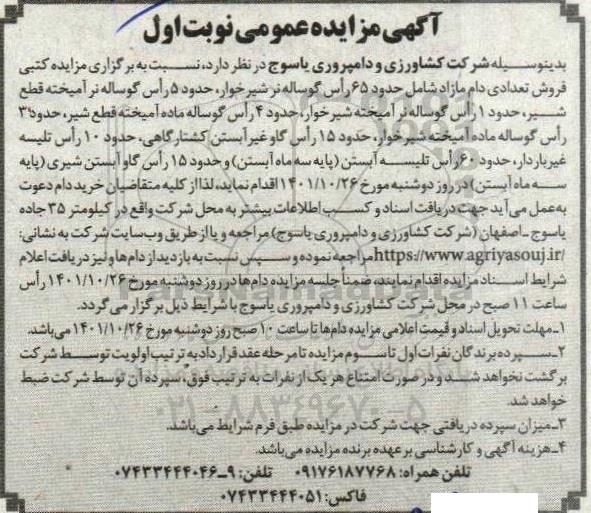 آگهی مزایده عمومی نوبت اول
بدینوسیله شرکت کشاورزی و دامپروری یاسوج در نظر دارد، نسبت به برگزاری مزایده کتبی
فروش تعدادی دام مازاد شامل حدود ۶۵ رأس گوساله نر شیرخوار، حدود ۵ رأس گوساله نر آمیخته قطع
شیر، حدود ۱ رأس گوساله نر آمیخته شیرخوار، حدود ۴ رأس گوساله ماده آمیخته قطع شیر، حدود ۳
رأس گوساله ماده آمیخته شیرخوار، حدود ۱۵ رأس گاو غیر آبستن کشتارگاهی، حدود ۱۰ رأس تلیسه
غیرباردار، حدود ۶۰ رأس تلیسه آبستن (پایه سه ماه آبستن) و حدود ۱۵ رأس گاو آبستن شیری (پایه
سه ماه آبستن) در روز دوشنبه مورخ ۱۴۰۱/۱۰/۲۶ اقدام نماید، لذا از کلیه متقاضیان خرید دام دعوت
به عمل می آید جهت دریافت اسناد و کسب اطلاعات بیشتر به محل شرکت واقع در کیلومتر ۳۵ جاده
یاسوج ـ اصفهان (شرکت کشاورزی و دامپروری یاسوج) مراجعه و یا از طریق وب سایت شرکت به نشانی:
https://www.agriyasouj.ir/ مراجعه نموده و سپس نسبت به بازدید از دام ها و نیز دریافت اعلام
شرایط اسناد مزایده اقدام نمایند، ضمناً جلسه مزایده دام ها در روز دوشنبه مورخ ۱۴۰۱/۱۰/۲۶ رأس
ساعت ۱۱ صبح در محل شرکت کشاورزی و دامپروری یاسوج با شرایط ذیل برگزار می گردد.
۱ـ مهلت تحویل اسناد و قیمت اعلامی مزایده دام ها تا ساعت ۱۰ صبح روز دوشنبه مورخ ۱۴۰۱/۱۰/۲۶ می باشد.
۲ـ سپرده برندگان نفرات اول تا سوم مزایده تا مرحله عقد قرارداد به ترتیب اولویت توسط شرکت
برگشت نخواهد شد و در صورت امتناع هر یک از نفرات به ترتیب فوق، سپرده آن توسط شرکت ضبط
خواهد شد.
۳ـ میزان سپرده دریافتی جهت شرکت در مزایده طبق فرم شرایط می باشد.
۴ـ هزینه آگهی و کارشناسی بر عهده برنده مزایده می باشد.
تلفن همراه: ۰۹۱۷۶۱۸۷۷۶۸ تلفن: ۹ـ۰۷۴۳۳۴۴۴۰۴۶
فاکس: ۰۷۴۳۳۴۴۴۰۵۱
۰۲۱-۸۸۳۴۹۶۷۰-۵